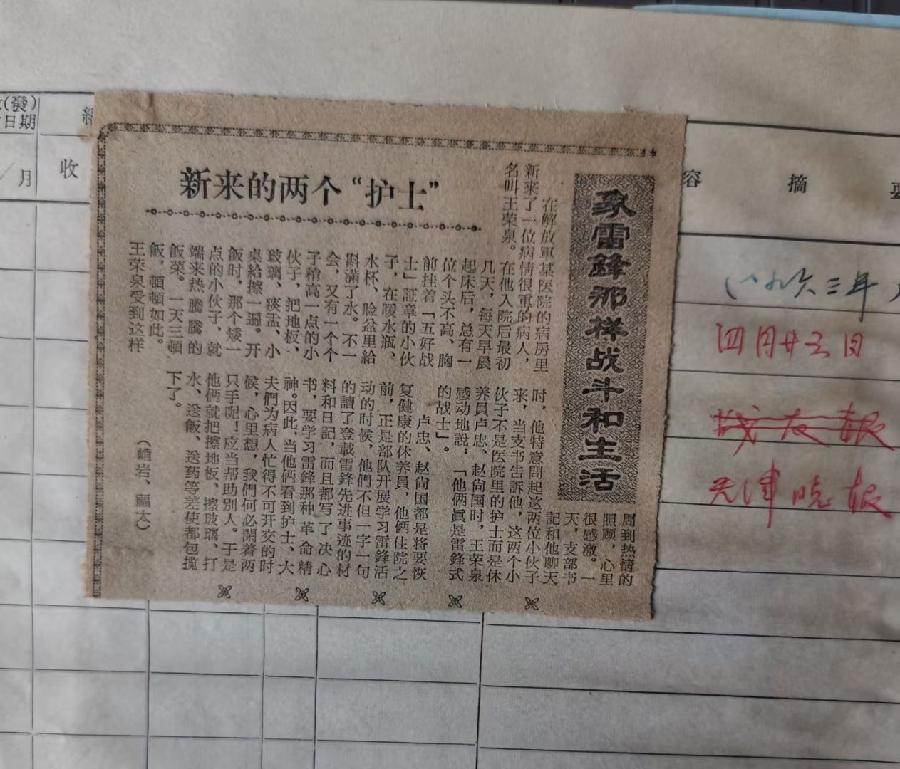 (發)
日期
月
收
容 摘 要
象雷鋒那样战斗和生活
新来的两个“护士”
在解放軍某医院的病房里
新来了一位病情很重的病人，
名叫王荣泉。在他入院后最初
几天，每天早晨
起床后，总有一
位个头不高、胸
前挂着「五好战
士」証章的小伙
子，在暖水瓶、
水杯、脸盆里給
斟满了水。不一
会，又有一个个
子稍高一点的小
伙子，把地板、
玻璃、痰盂、小
桌給擦一遍。开
飯时，那个矮一
点的小伙子，就
端来热騰騰的
飯菜。一天三頓
飯，頓頓如此。
王荣泉受到这样
周到热情的
照顾，心里
很感激。一
天，支部书
記和他聊天
时，他特意問起这两位小伙子
来，当支书告訴他，这两个小
伙子不是医院里的护士而是休
养員卢忠、赵尚国时，王荣泉
感动地說，「他俩眞是雷鋒式
的战士」。
卢忠、赵尚国都是将要恢
复健康的休养員，他俩住院之
前，正是部队开展学习雷鋒活
动的时候，他們不但一字一句
的讀了登載雷鋒先进事迹的材
料和日記，而且都写了决心
书，要学习雷鋒那种革命精
神。因此，当他俩看到护士、大
夫們为病人忙得不可开交的时
候，心里想，我們何必閒着两
只手呢！应当帮助別人。于是
他俩就把擦地板、擦玻璃、打
水、送飯、送药等差使都包揽
下了。
（峭岩、顧大）
(一九六三年
四月廿三日
战友报
天津晚报